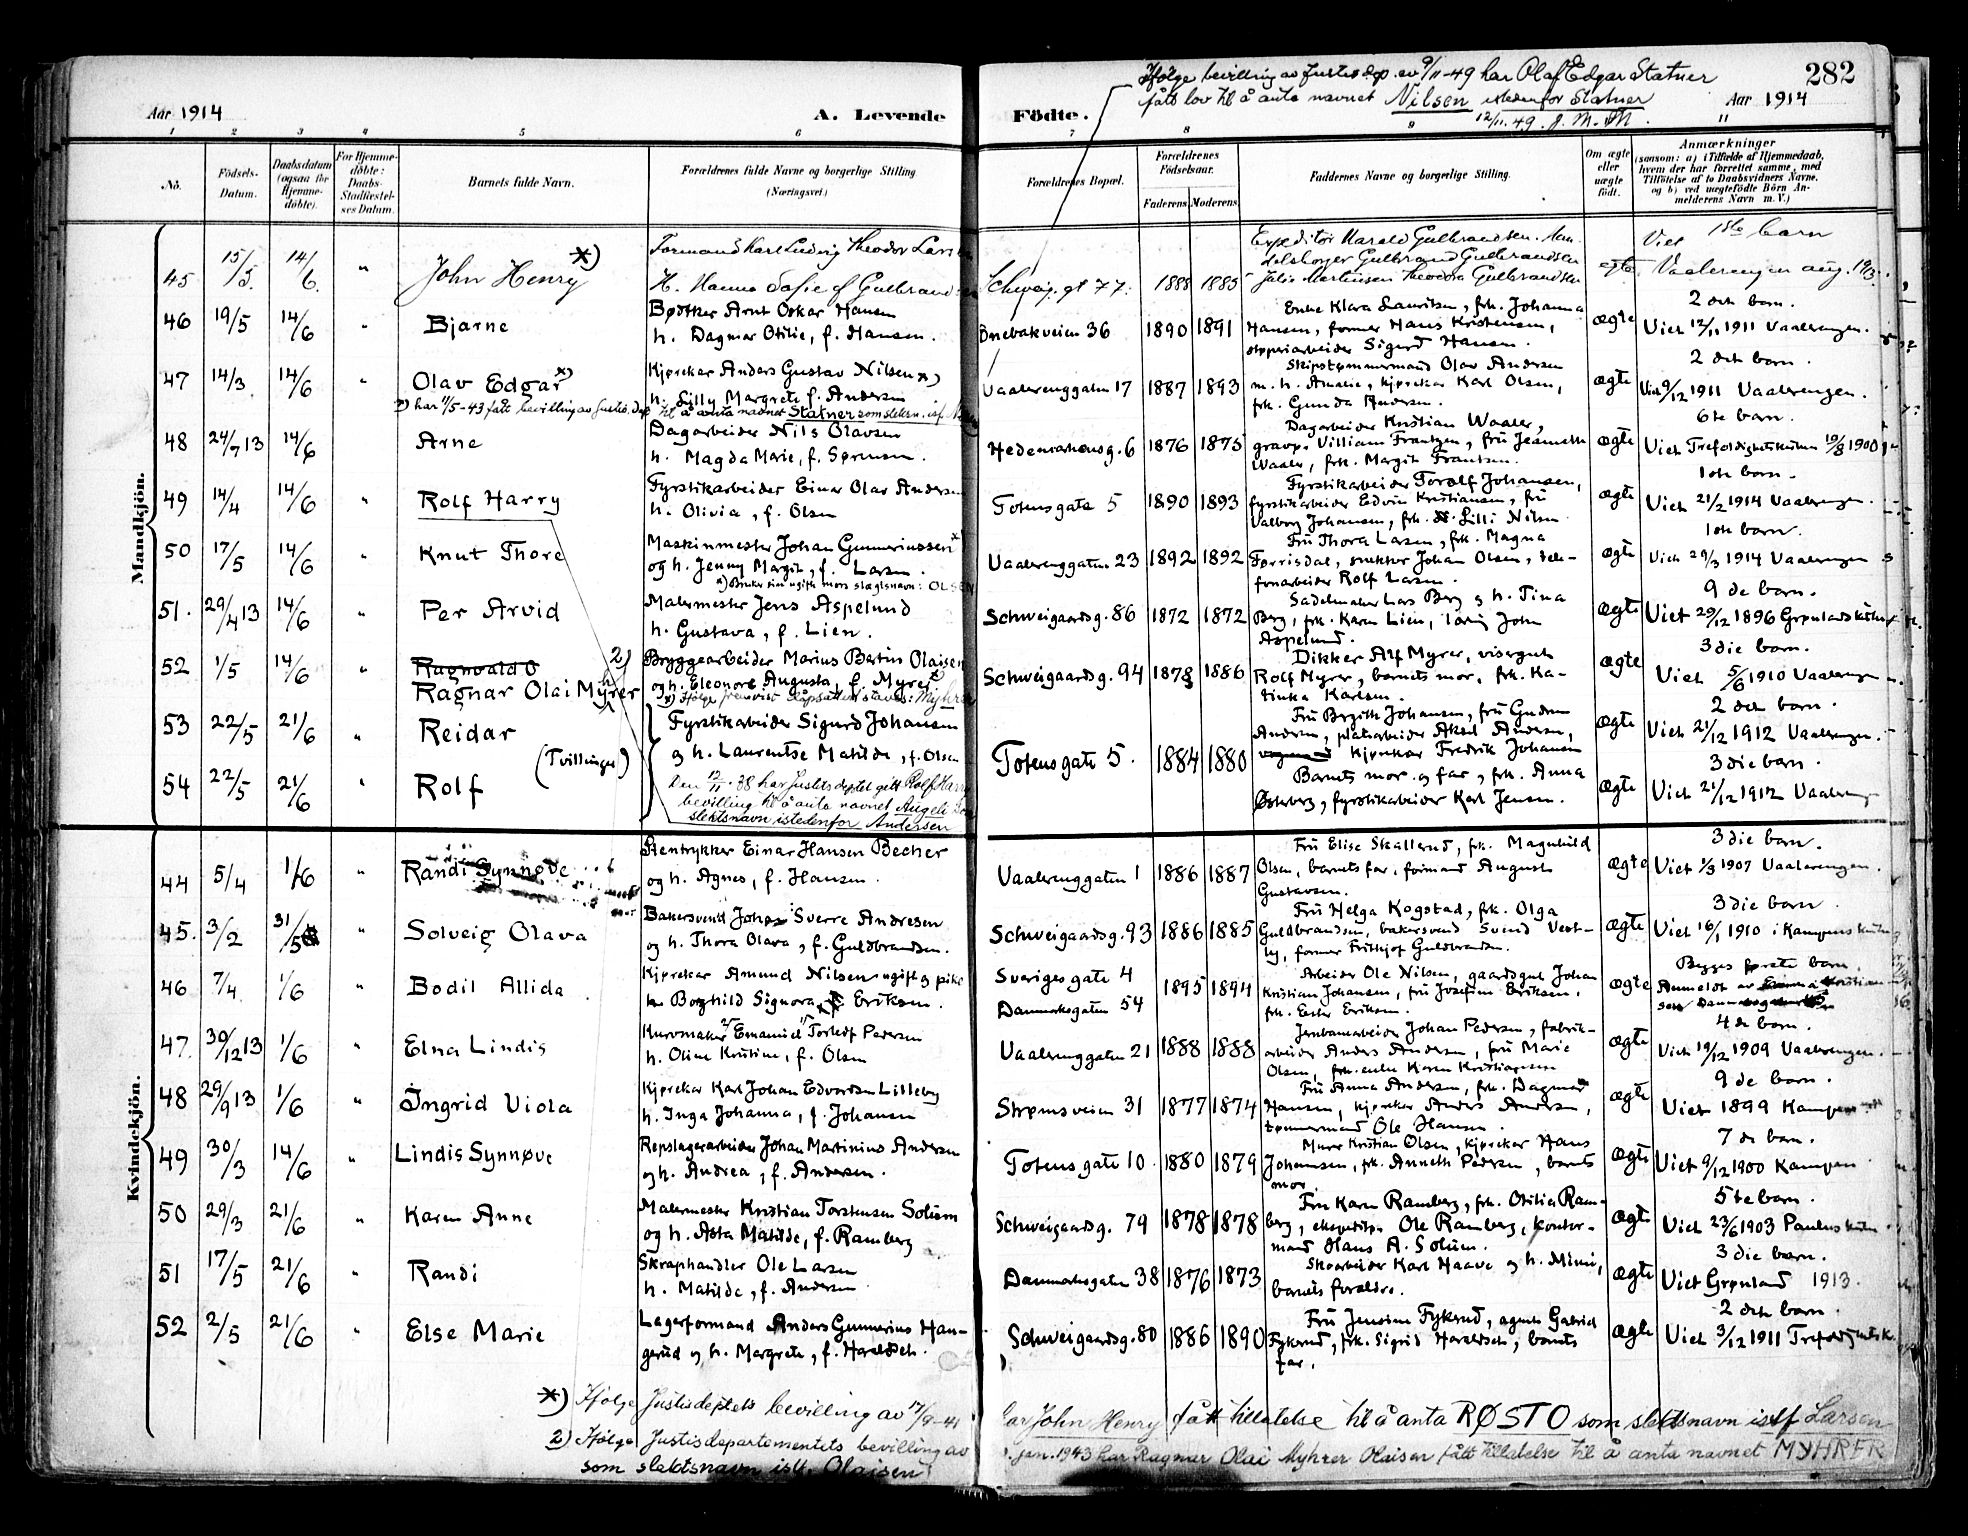 Ifølge bevilling av Justisdep. av 9/11-49 har Olaf Edgar Statner
fått lov til å anta navnet Nilsen istedenfor Statner
12/11. 49. J. M. M.
282
Aar 1914
A. Levende
Födte.
Aar 1914
1 2 3 4 5 6 7 8 9 11
No.
Födsels-Datum.
Daabsdatum (ogsaa for Hjemmedöbte).
For Hjemmedöbte: Daabs-Stadfæstelses Datum.
Barnets fulde Navn.
Forældrenes fulde Navne og borgerlige Stilling (Næringsvei.)
Forældrenes Bopæl.
Forældrenes Födselsaar.
Faderens. Moderens.
Faddernes Navne og borgerlige Stilling.
Om ægte eller uægte födt.
Anmærkninger
(saasom: a) i Tilfælde af Hjemmedaab, hvem der har forrettet samme, med Tilföielse af to Daabsvidners Navne. og b) ved uægtefödte Börn Anmelderens Navn m. V.)
Mandkjön.
45 15/5. 14/6. " John Henry *)
Formand Karl Ludvig Theodor Lars
H. Hanna Sofie f Gulbrand
Schweig. gt 77. 1888 1885
Expeditør Harald Gulbrandsen
Gulbrand Gulbrandsen
Julie Martinsen Theodora Gulbrandsen
ægte
1ste barn
Viet Vaalerengen aug. 1913.
46 19/5 14/6 " Bjarne
Bødtker Arnt Oskar Hansen
h. Dagmar Otilie, f. Hansen.
Enebakveien 36 1890 1891
Enke Klara Lauritsen, frk. Johanna
Hansen, former Hans Kristensen,
støperiarbeider Sigurd Hansen.
ægte
2 det barn.
Viet 12/11 1911 Vaalerengen.
47 14/3. 14/6 " Olav Edgar *)
Kjørekar Anders Gustav Nilsen *)
h. Lilly Margrete f. Andersen
*) har 11/5-43 fått bevilling av Justis. Dep til å anta navnet Statner som slektn. isf.
Vaalerenggaten 17 1887 1893
Skipstømmermand Olav Andersen
m. h. Amalie, kjørekar Karl Olsen,
frk. Gunda Andersen.
ægte
2 det barn.
Viet 9/12 1911 Vaalerengen.
48 24/7 13 14/6 " Arne
Dagarbeider Nils Olavsen
h. Magda Marie, f. Sørensen.
Hedemarkensg. 6 1876 1875
Dagarbeider Kristian Waaler,
gravør Villiam Frantzen, fru Jeanneth
Waaler, frk. Margit Frantzen.
ægte
6te barn.
Viet Trefoldighetskirken 19/8 1900
49 14/4 14/6 " Rolf Harry
Fyrstikarbeider Einar Olav Andersen
h. Olivia, f. Olsen
Totensgate 5 1890 1893
Fyrstikarbeider Toralf Johansen,
fyrstikarbeider Edvin Kristiansen, fru
Valborg Johansen, frk. Lilli Nilsen.
ægte
1ste barn.
Viet 21/2 1914 Vaalerengen.
50 17/5 14/6 " Knut Thore
Maskinmester Johan Gunneriussen *
og h. Jenny Margit, f. Larsen.
*) Bruker sin ugifte mors slægtsnavn: OLSEN
Vaalerenggaten 23 1892 1892
Fru Thora Larsen, frk. Magna
Førrisdal, snekker Johan Olsen, telefonarbeider Rolf Larsen.
ægte
1ste barn.
Viet 29/3 1914 Vaalerengen
51. 29/4 13 14/6 " Per Arvid
Malermester Jens Aspelund
h. Gustava, f. Lien.
Schweigaardsg. 86 1872 1872
Sadelmaker Lars Berg og h. Tina
Berg, frk. Karen Lien, John
Aspelund.
ægte
9 de barn.
Viet 29/12 1896 Grønlands kirke
52 1/5 14/6 " Ragnvald O
Ragnar Olai Myrer 2)
h
Bryggearbeider Marius Bertin Olaisen
og h. Eleonore Augusta, f. Myrer *)
Schweigaardsg. 94 1878 1886
Dikker Alf Myrer, visergut
Rolf Myrer, barnets mor, frk. Katinka Karlsen.
ægte
3die barn.
Viet 5/6 1910 Vaalerengen
53 22/5 21/6 " Reidar
(Tvillinger)
Fyrstikarbeider Sigurd Johansen
og h. Laurentse Matilde, f. Olsen
Totensgate 5. 1884 1880
Fru Birgith Johansen, fru Gudrun
Andersen, platearbeider Aksel Andersen,
kjørekar Fredrik Johansen
ægte
2 det barn.
Viet 21/12 1912 Vaalerengen.
54 22/5 21/6 " Rolf
Den 12/11. 38 har Justitsdeptet gitt Rolf Harry
bevilling til å anta navnet Angell som
slektsnavn istedenfor Andersen
Barnets mor og far, frk. Anna
Østerberg, fyrstikarbeider Karl Jensen.
ægte
3die barn.
Viet 21/12 1912 Vaalerengen
Kvindekjön.
44 5/4 1/6 " Randi Synnøve
Stentrykker Einar Hansen Becher
og h. Agnes, f. Hansen.
Vaalerenggaten 1 1886 1887
Fru Elise Skallerud, frk. Magnhild
Olsen, barnets far, formand August
Gustavsen.
ægte
3 die barn.
Viet 1/3 1907 Vaalerengen.
45. 3/2 31/5 " Solveig Olava
Bakersvend Johan Sverre Andresen
og h. Thora Olava, f. Guldbrandsen.
Schweigaardsg. 93 1886 1885
Fru Helga Kogstad, frk. Olga
Guldbrandsen, bakersvend Svend Vestby, former Frithjof Guldbrandsen.
ægte
3 die barn.
Viet 16/1 1910 i Kampens kirke
46 7/4 1/6 " Bodil Allida
Kjørekar Amund Nilsen ugift og pike
Borghild Signora Eriksen.
Sverigesgate 4
Danmarksgaten 54
1895 1894
Arbeider Ole Nilsen, gaardsgut Johan
Kristian Johansen, fru Josefine Eriksen,
frk. Ester Eriksen.
ægte
Begges første barn,
Anmeldt av
47. 30/12 13 1/6 " Elna Lindis
Kurvmaker Emanuel Torleif Pedersen
h. Oline Kristine, f. Olsen
Vaalerenggaten 21 1888 1888
Jernbanearbeider Johan Pedersen, fabrikarbeider Anders Andersen, fru Marie
Olsen, frk. enke Karen Kristiansen
ægte
4 de barn.
Viet 19/12 1909 Vaalerengen.
48 29/9 13 1/6 " Ingrid Viola
Kjørekar Karl Johan Edvardsen Lilleby
h. Inga Johanna, f. Johansen
Strømsveien 31 1877 1874
Fru Anna Andersen, frk. Dagmar
Hansen, kjørekar Anders Andersen,
tømmermand Ole Hansen.
ægte
9 de barn.
Viet 1899 Kampen
49 30/3 14/6 " Lindis Synnøve
Repslagerarbeider Johan Martinius Andersen
og h. Andrea, f. Andersen.
Totens gate 10. 1880 1879
Murer Kristian Olsen, kjørekar Hans
Johansen, frk. Anneth Pedersen, barnets
mor.
ægte
7 de barn.
Viet 9/12 1900 Kampen.
50 29/3 21/6 " Karen Anne
Malermester Kristian Torstensen Solum
og h. Asta Matilde, f. Ramberg
Schweigaardsg. 79 1878 1878
Fru Karen Ramberg, frk. Otilia Ramberg, ekspeditør Ole Ramberg, kontormand Hans A. Solum.
ægte
5te barn.
Viet 23/6 1903 Paulus kirke
51 17/5 21/6 " Randi
Skraphandler Ole Larsen
h. Matilde, f. Andersen
Danmarksgaten 38 1876 1873
Skoarbeider Karl Haave og h. Mimi,
barnets forældre.
ægte
3 die barn.
Viet Grønland 1913.
52 2/5 21/6 " Else Marie
Lagerformand Anders Gunnerius Hangerud og h. Margrete, f. Haraldseth.
Schweigaardsg. 80 1886 1890
Fru Jensine Fykerud, agent Gabriel
Fykerud, frk. Sigrid Haraldseth, barnets
far.
ægte
2 det barn.
Viet 3/12 1911 Trefoldighetsk.
*) Ifølge Justisdeptets bevilling av 17/9-41 har John Henry fått tillatelse til å anta RØSTO som slektsnavn istf Larsen
2) Ifølge Justisdepartementets bevilling av jan. 1943 har Ragnar Olai Myhrer Olaisen fått tillatelse til å anta navnet MYHRER
som slektsnavn istf. Olaisen